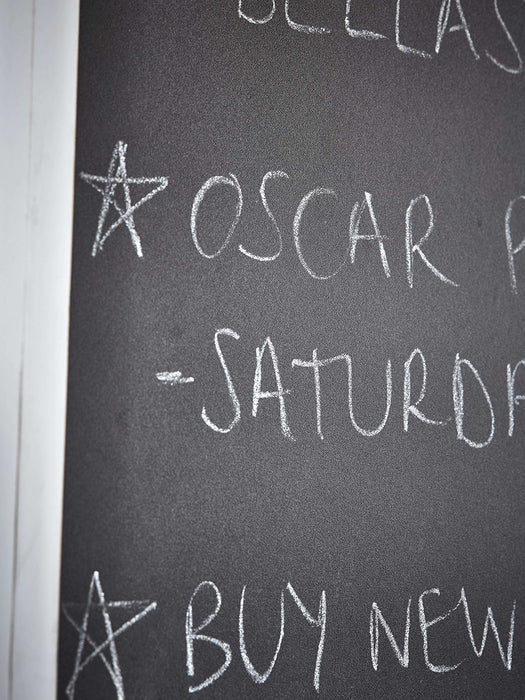 BELLAS
☆ OSCAR P
-SATURDA
☆ BUY NEW